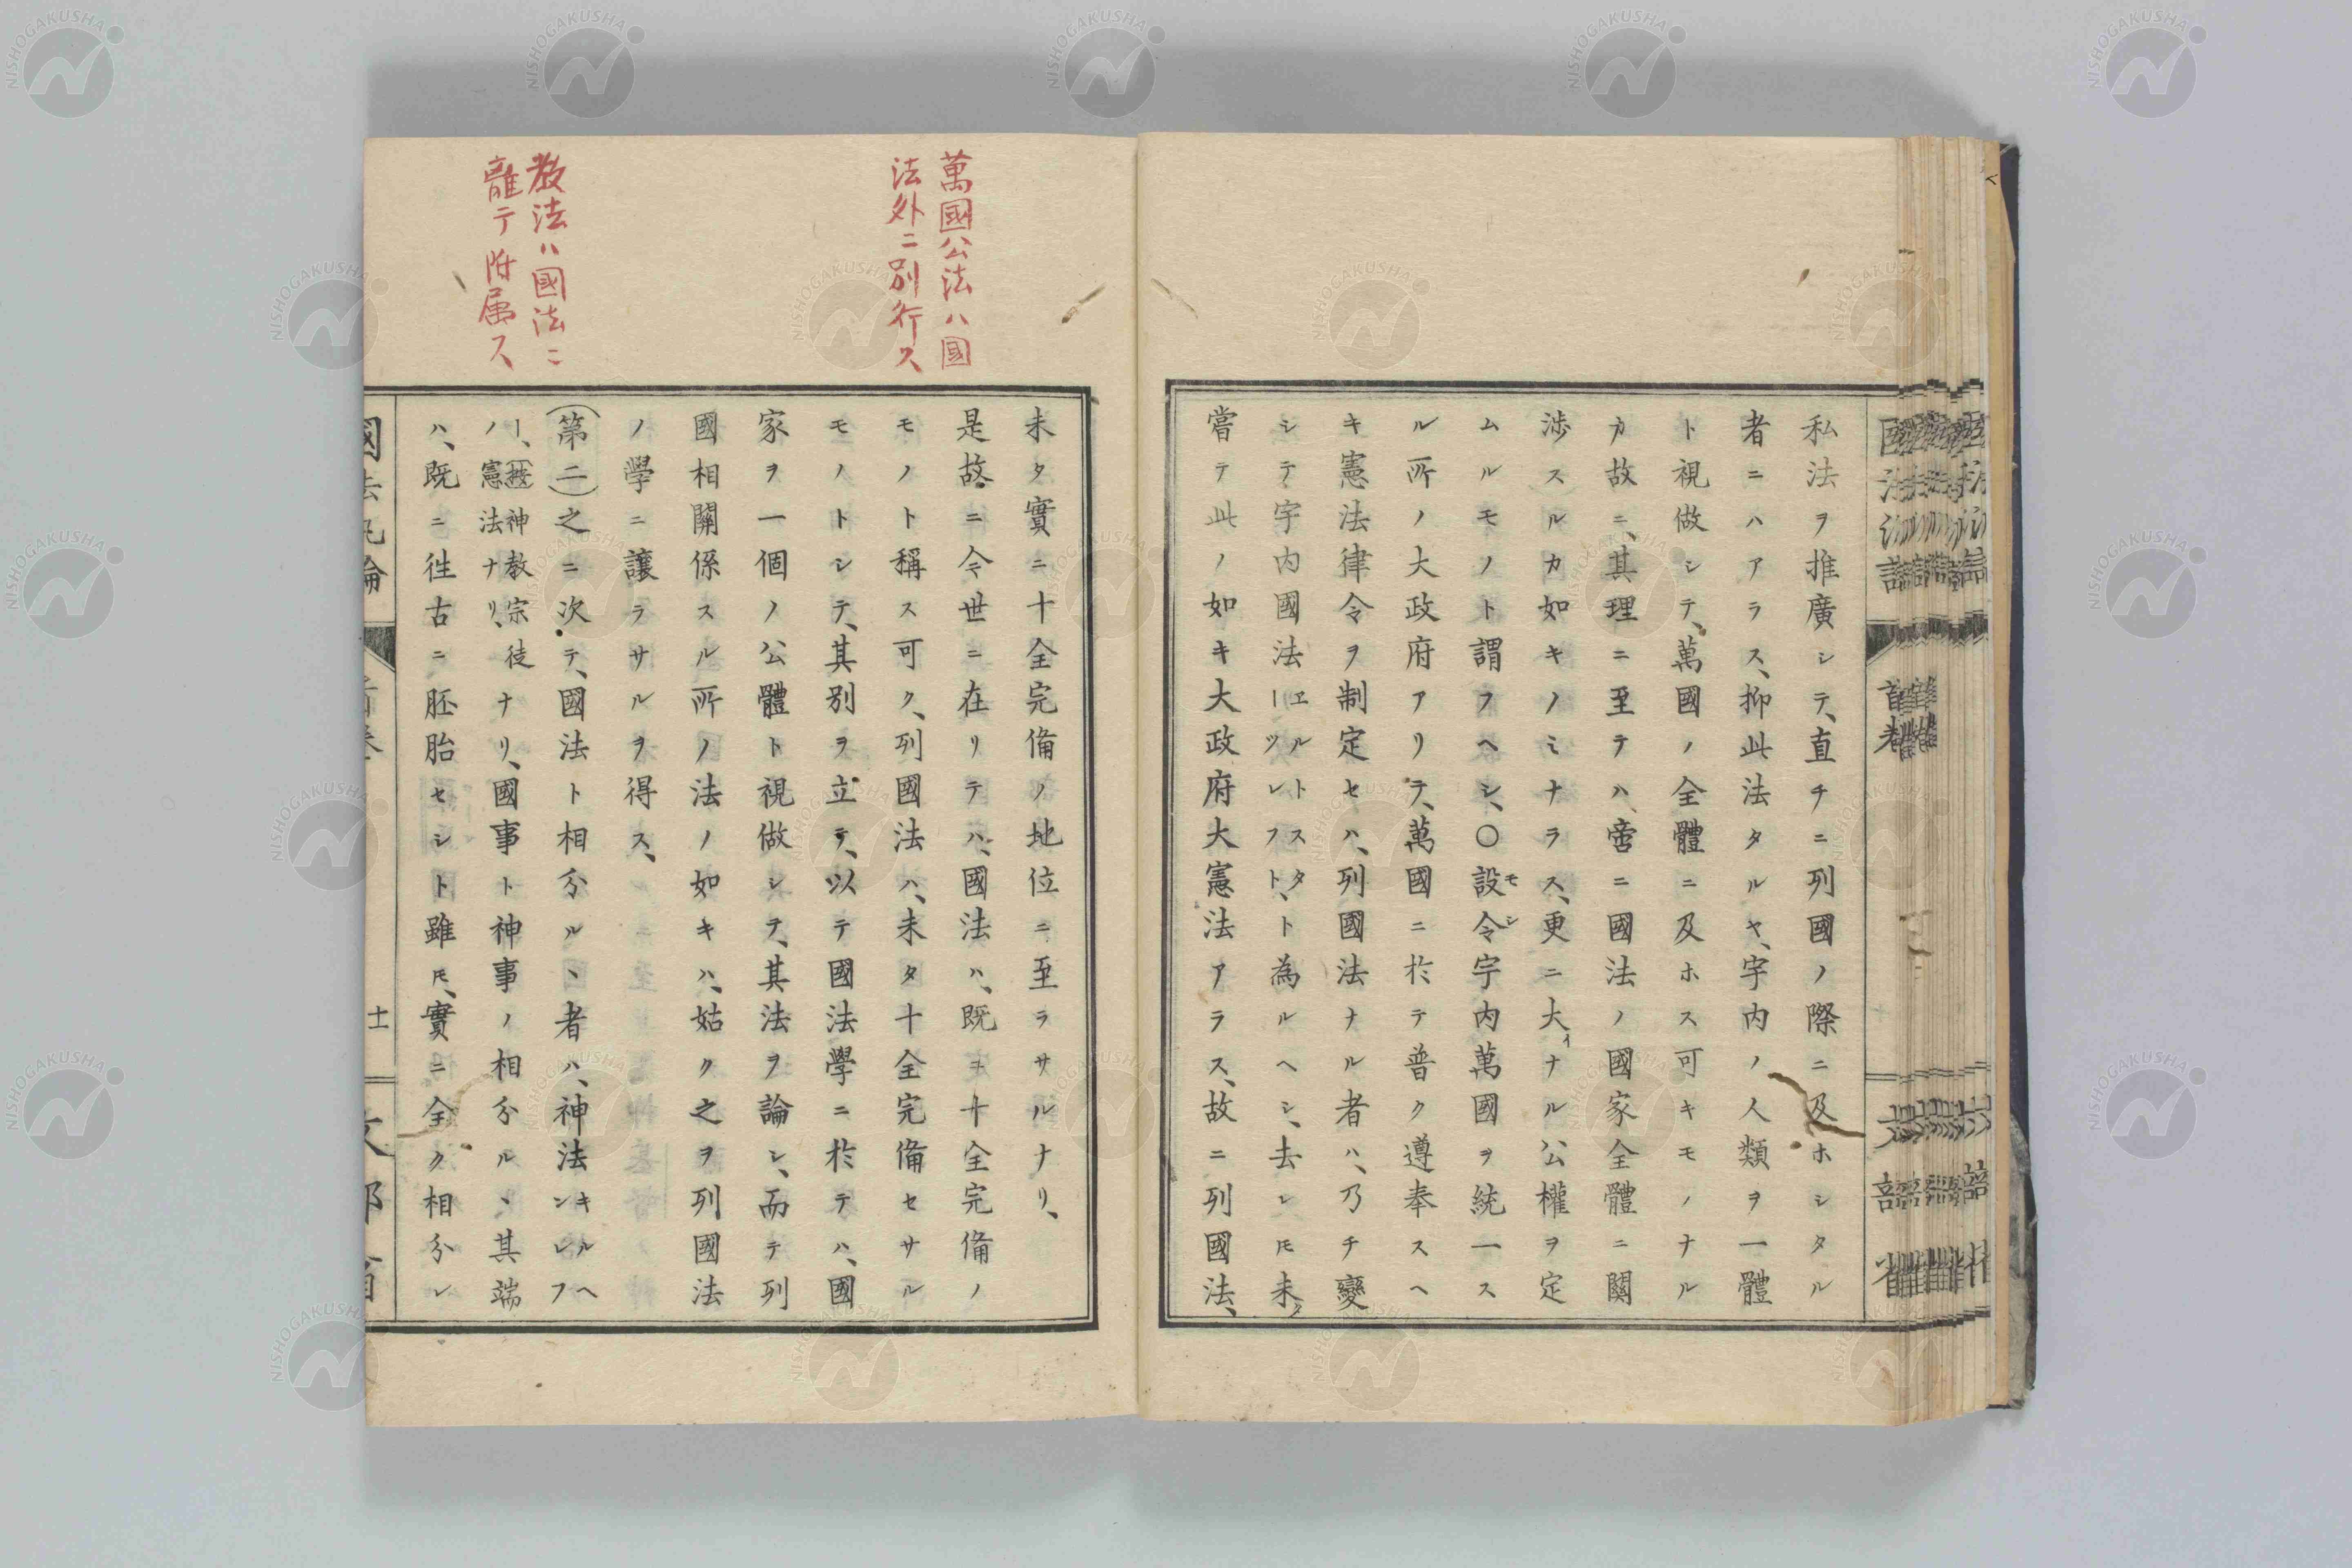 私法ヲ推廣シテ、直チニ列國ノ際ニ及ホシタル
者ニハアラス、抑此法タルヤ、宇内ノ人類ヲ一體
ト視做シテ、萬國ノ全體ニ及ホス可キモノナル
カ故ニ、其理ニ至テハ、啻ニ國法ノ國家全體ニ關
渉スルカ如キノミナラス、更ニ大イナル公權ヲ定
ムルモノト謂フヘシ、〇設令モシ宇内萬國ヲ統一ス
ル所ノ大政府アリテ、萬國ニ於テ普ク遵奉スヘ
キ憲法律令ヲ制定セハ、列國法ナル者ハ、乃チ變
シテ宇内國法エルトスターツレフト、ト為ルヘシ、去レㇳモ未タ
嘗テ此ノ如キ大政府大憲法アラス、故ニ列國法、
萬國公法ハ國
法外ニ別行ス
未タ實ニ十全完備ノ地位ニ至ラサルナリ、
是故ニ今世ニ在リテハ、國法ハ、既ニ十全完備ノ
モノト稱ス可ク、列國法ハ、未タ十全完備セサル
モノトシテ、其別ヲ立テ、以テ國法學ニ於テハ、國
家ヲ一個ノ公體ト視做シテ、其法ヲ論シ、而テ列
國相關係スル所ノ法ノ如キハ、姑ク之ヲ列國法
ノ學ニ讓ラサルヲ得ス、
教法ハ國法ニ
離テ附属ス
(第二)之ニ次テ、國法ト相分ルヽ者ハ、神法キルヘンレフ
ー、教神教宗徒
ノ憲法ナリ、ナリ、國事ト神事ノ相分ルヽ、其端
ハ、既ニ徃古ニ胚胎セシト雖ㇳモ、實ニ全ク相分レ
國法汎論
首巻
十一
文部省